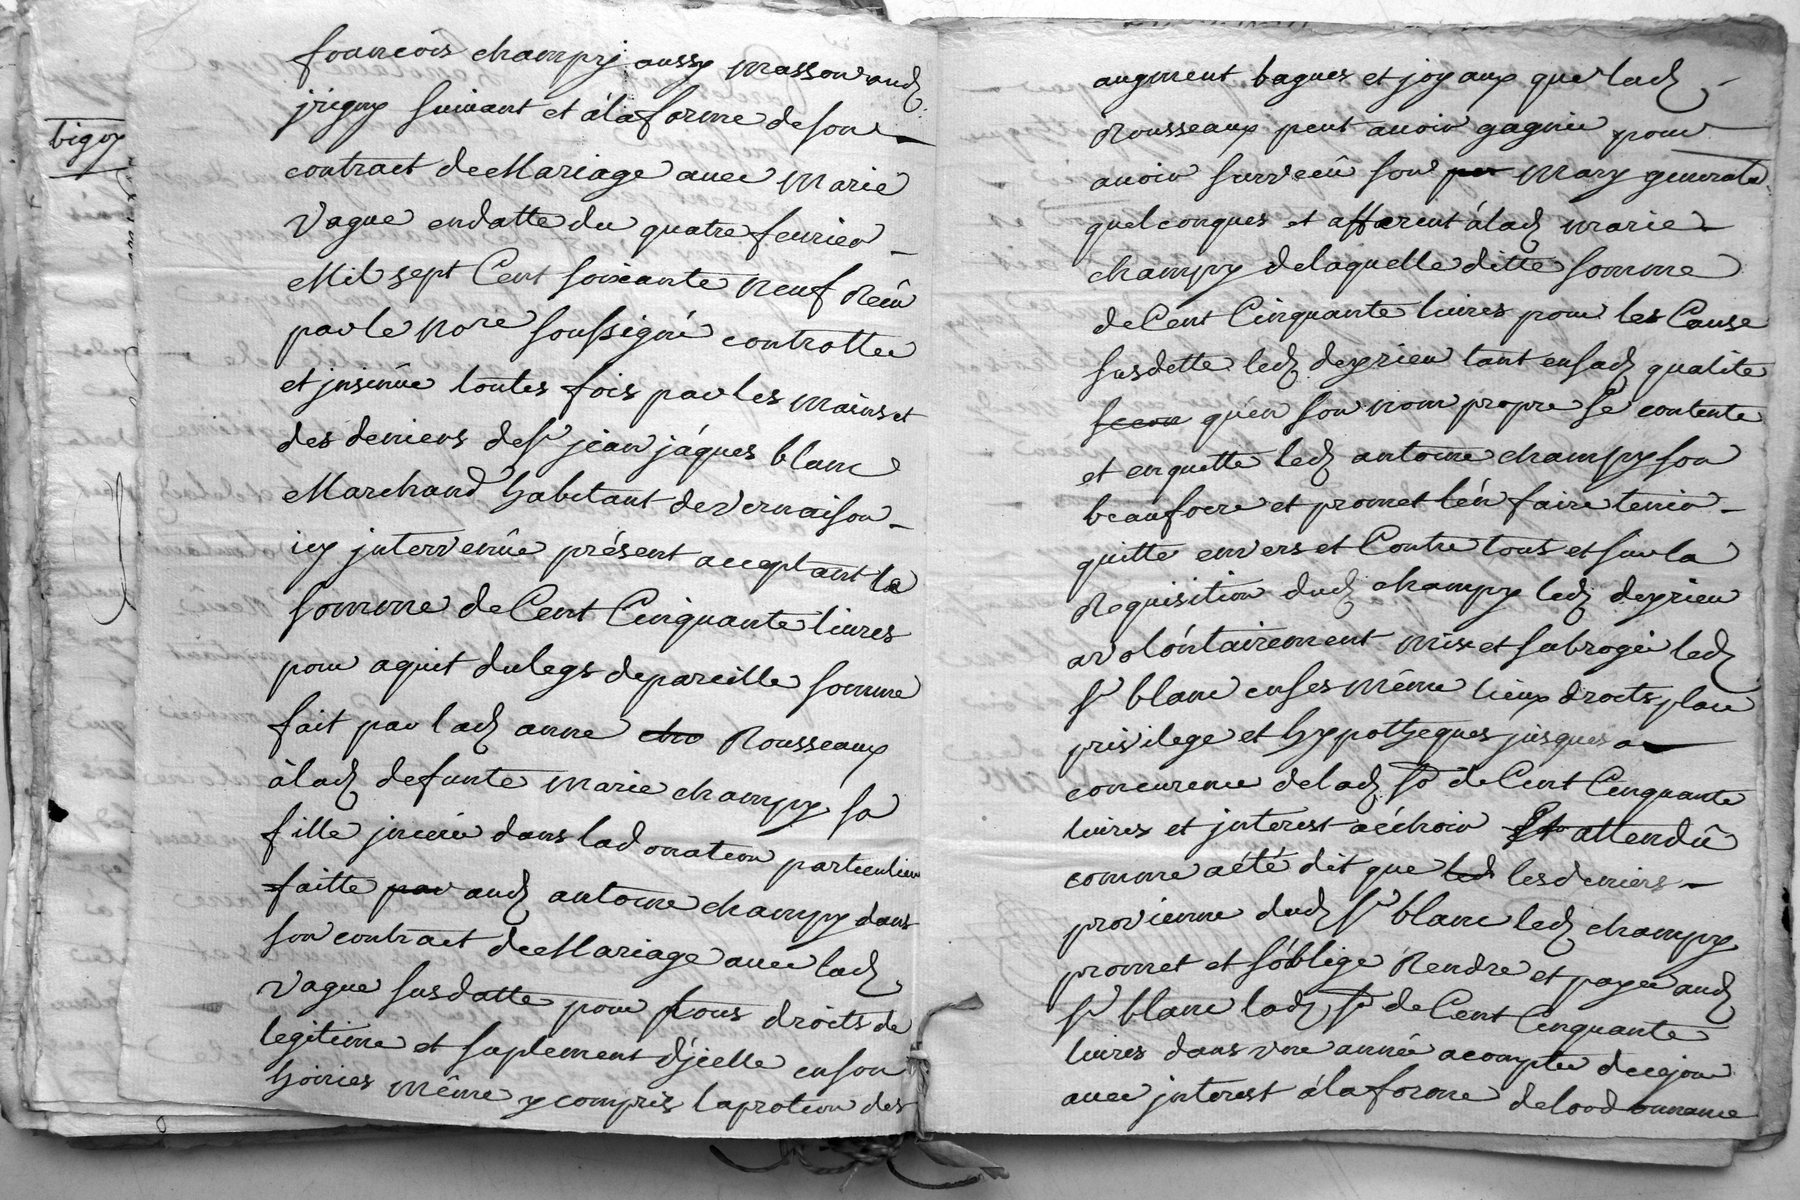 bigoy
francois champy aussy masson aud.
jrigny suivant et àlaforme deson
contract deMariage avec marie
Vague endatte du quatre fevrier
Mil sept Cent soixante neuf Reçû
parle no.re soussigné controllée
et jnsinüe toutes fois par les mains et
des deniers de sr jean jáques blanc
Marchand habitant de vernaison
icy jntervenüe présent acceptant la
somme de Cent Cinquante livres
pour aquit du legs depareille somme
fait par lad. anne Rousseaux
àlad. defunte marie champy sa
fille jnserée dans ladonation particuliere
faitte aud. antoine champy dans
son contract deMariage avec lad.
Vague susdatte pour tous droits de
legitime et suplement d'jcelle enson
hoiries même y compris laprotion des
augment bagues et joyaux que lad.
Rousseaux peut avoir gagnée pour
avoir survecû son mary generale
quelconques et afferent àlad. marie
champy delaquelle ditte somme
deCent Cinquante livres pour les Cause
susdette led. deyrieu tant ensad. qualite
qu'en son nom propre se contente
et enquitte led. antoine champy son
beaufrere et promet l'én faire tenir
quitte envers et Contre tous et sur la
Requisition dud. champy led. deyrieu
avolóntairement mis et subrogé led.
sr blanc en ses même lieux droits place
privilege et hypotheques jusques a
concurence delad. sẽ de Cent Cinquante
livres et jnterest aéchoir attendû
comme aété dit que les deniers
provienne dud. sr blanc led. champy
promet et s'óblige Rendre et payer aud.
sr blanc lad. sẽ de Cent Cinquante
livres dans une année acompter decejour
avec jnterest àlaforme delordonnance